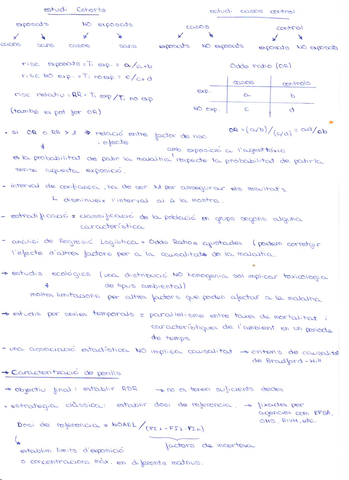 estudi cohorts
estudi casos control
exposats NO exposats
casos control
casos sans casos sans
exposats NO exposats exposats NO exposats
risc exposats = T. exp = a/a+b
risc NO exp. = T. no exp = c/c+d
Odds ratio (OR)
casos controls
exp. a b
NO exp. c d
risc relatiu = RR = T. exp/T. no exp
(també es pot fer OR)
• si OR o RR > 1 → relació entre factor de risc i efecte
OR = (a/b)/(c/d) = ad/cb
amb exposició a l'agent tòxic
és la probabilitat de patir la malaltia respecte la probabilitat de patir-la
sense aquesta exposició.
- interval de confiança, ha de ser >1 per assegurar els resultats
↳ disminueix l'interval si ↑ la mostra.
- estratificació = classificació de la població en grups segons alguna
característica
- anàlisi de Regressió Logística = Odds Ratios ajustades (podem corregir
l'efecte d'altres factors per a la causalitat de la malaltia.
→ estudis ecològics (una distribució NO homogènia sol implicar toxicologia
de tipus ambiental)
moltes limitacions per altres factors que poden afectar a la malaltia.
→ estudis per sèries temporals = paral·lelisme entre taxes de mortalitat i
característiques de l'ambient en un període
de temps
- una associació estadística NO implica causalitat → criteris de causalitat
de Bradford-Hill
→ Caracterització de perills
→ objectiu final: establir → no es tenen suficients dades
• estratègia clàssica: establir dosi de referència. → fixades per
agències com EFSA,
OMS, etc.
Dosi de referència = NOAEL /
factors de incertesa
establim límits d'exposició
o concentracions màx. en diferents matrius.